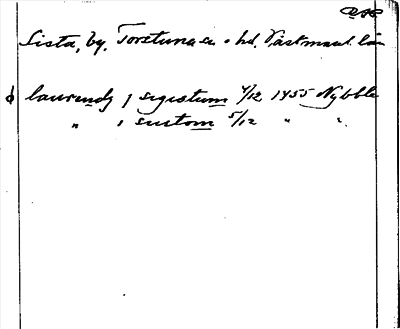 Sista, by, Torstuna sn o hd, Västmanl. län
laurends j sigistum 4/12 1455 Nybble
" j sustom 5/12 " "